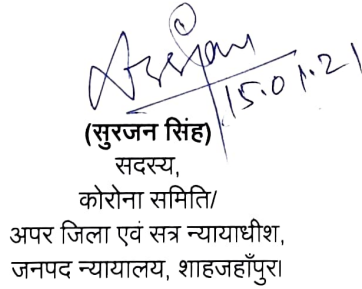 15.01.21
(सुरजन सिंह)
सदस्य,
कोरोना समिति/
अपर जिला एवं सत्र न्यायाधीश,
जनपद न्यायालय, शाहजहाँपुर।